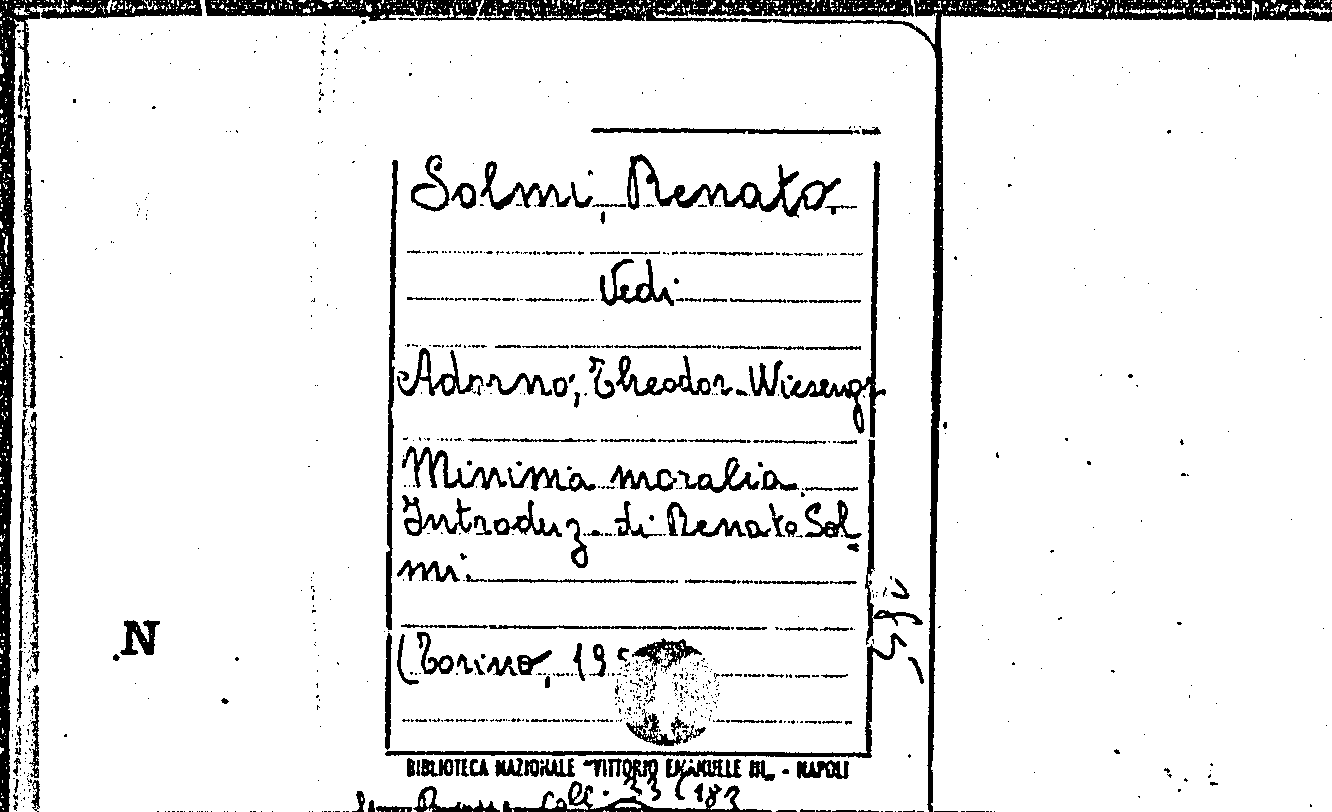 Solmi, Renato.
Vedi
Adorno, Theodor-Wieseng
Minima moralia
Introduz. di Renato Sol-
mi.
N
(Torino, 195
BIBLIOTECA NAZIONALE "VITTORIO EMANUELE III„ - NAPOLI
Coll. 33